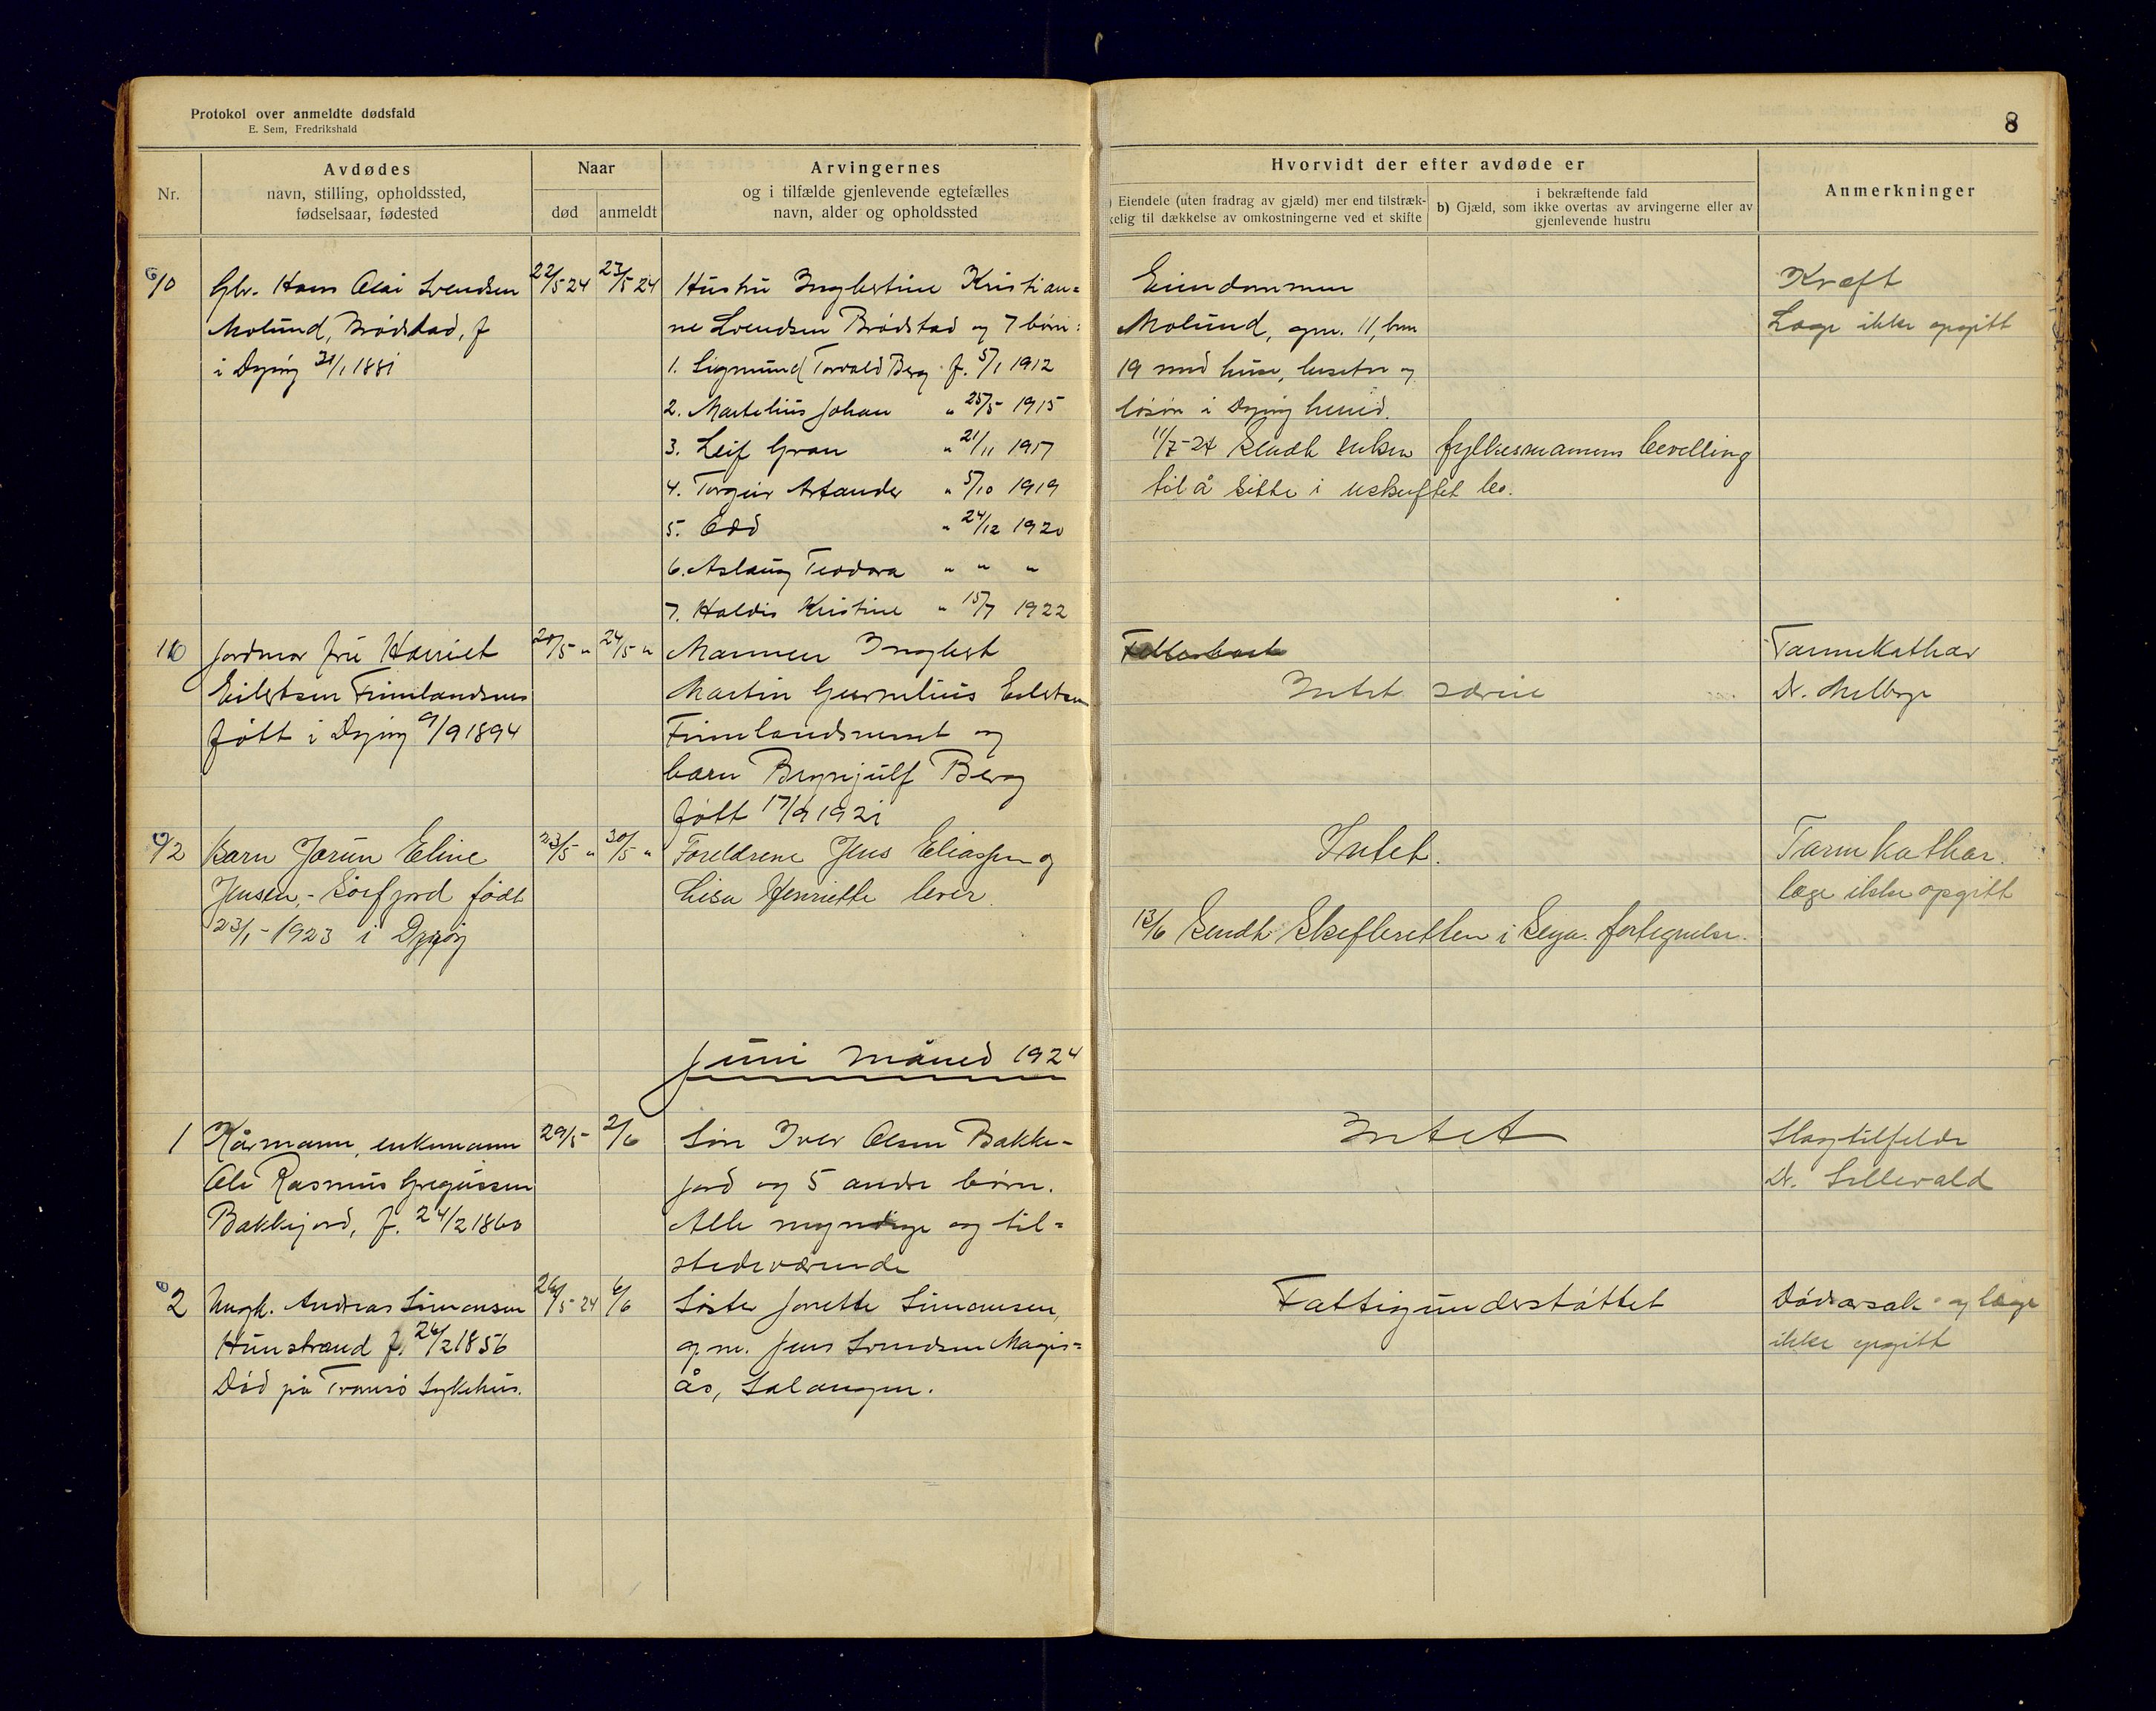 Protokol over anmeldte dødsfald
E. Sem, Fredrikshald
8
Nr.
Avdødes
navn, stilling, opholdssted,
fødselsaar, fødested
Naar
død
anmeldt
Arvingernes
og i tilfælde gjenlevende egtefælles
navn, alder og opholdssted
Hvorvidt der efter avdøde er
) Eiendele (uten fradrag av gjæld) mer end tilstræk-
kelig til dækkelse av omkostningerne ved et skifte
i bekræftende fald
b) Gjæld, som ikke overtas av arvingerne eller av
gjenlevende hustru
Anmerkninger
10
Gbr. Hans Olai Svendsen
Molund, Brødstad, f
i Dyrøy 31/1 1881
22/5 24
23/5 24
Hustru Inglertine Kristian=
ne Svendsen Brødstad og 7 børn:
1. Sigmund Torvald Berg f. 5/1 1912
2. Martelius Johan " 25/5 1915
3. Leif Gran " 21/11 1917
4. Torgeir Arfander " 5/10 1919
5. Odd " 24/12 1920
6. Aslaug Teodora " " "
7. Haldis Kristine " 15/7 1922
Eiendommen
Molund, gnr. 11, bnr
19 med huse, besetn og
løsøre i Dyrøy herred.
11/7-24 Sendt enken fylkesmannens bevilling
til å sitte i uskiftet bo.
Kræft
Læge ikke opgitt
11
Jordmor fru Harriet
Eilertsen Finnlandsnes
født i Dyrøy 9/9 1894
20/5 "
24/5 "
Mannen Inglert
Martin Gurnelius Eilertsen
Finnlandsneset og
barn Brynjulf Berg
født 17/9 1921
Fellesboet
Intet særeie
Tarmkathar
Dr. Melbye
12
Barn Jorun Eline
Jensen - Sørfjord født
23/1-1923 i Dyrøy
23/5 "
30/5 "
Foreldrene Jens Eliassen og
Lisa Henriette lever.
Intet.
13/6 Sendt Skifteretten i Senja fortegnelse.
Tarmkathar.
læge ikke opgitt
Juni måned 1924
1
Kårmann, enkemann
Ole Rasmus Gregussen
Bakkejord, f. 24/2 1860
29/5
2/6
Søn Iver Olsen Bakke-
jord og 5 andre børn.
Alle myndige og til=
stedeværende
Intet
Slagtilfelde
Dr. Sillevald
2
Ungk. Andreas Simonsen
Hunstrand f. 26/2 1856
Død på Tromsø Sykehus.
26/5 24
6/6
Søster Jorette Simonsen,
g.m. Jens Svendsen Magis=
ås, Salangen.
Fattigunderstøttet
Dødsårsak og læge
ikke opgitt